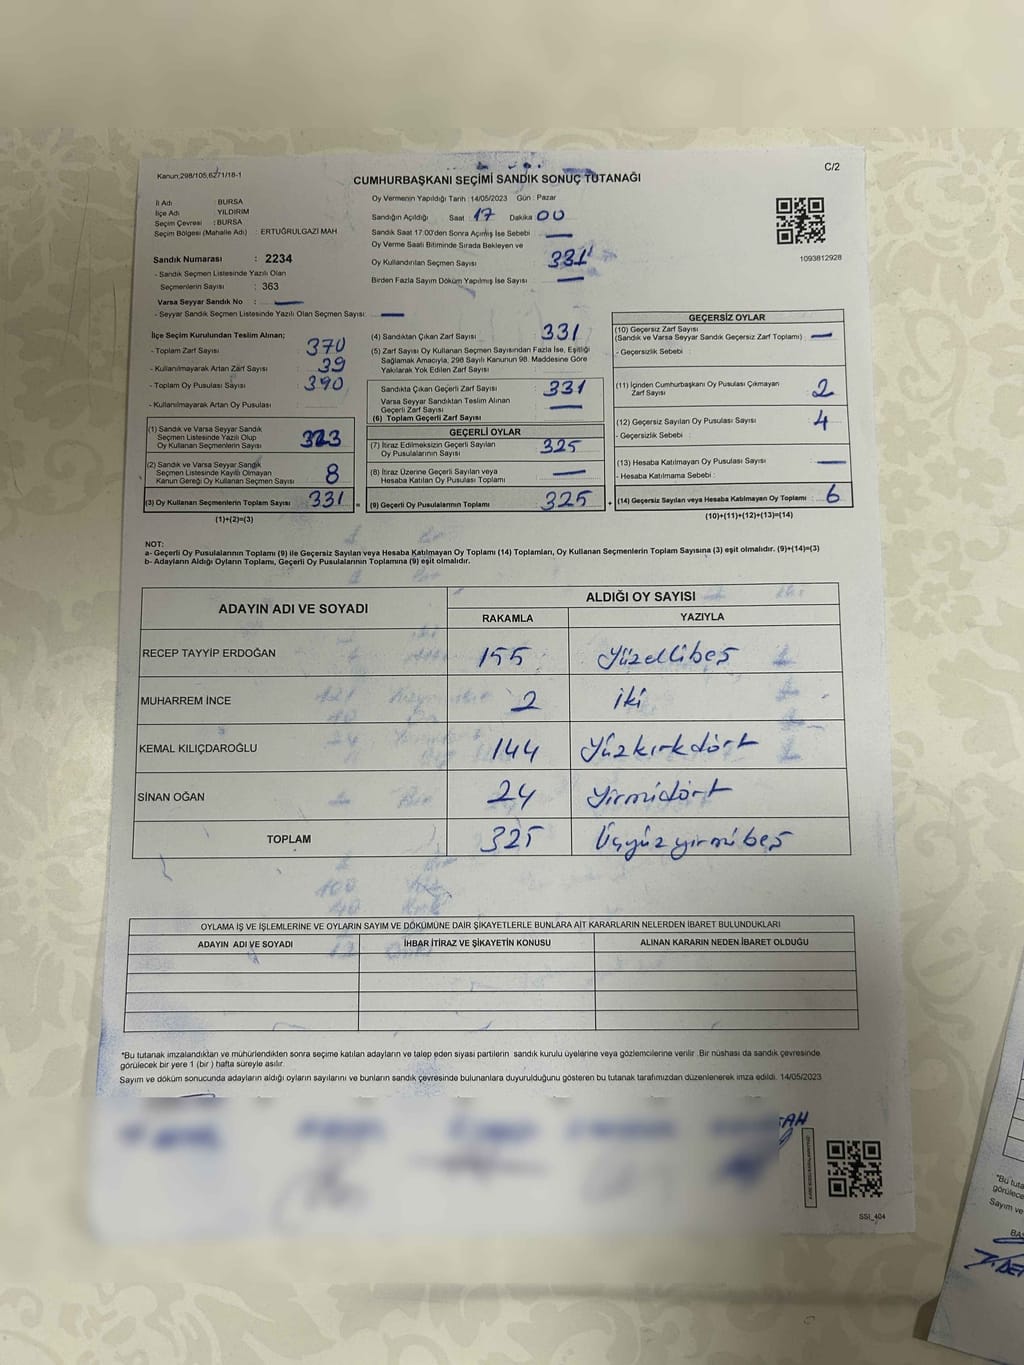 Kanun;298/105,6271/18-1
C/2
CUMHURBAŞKANI SEÇİMİ SANDIK SONUÇ TUTANAĞI
İl Adı : BURSA
İlçe Adı : YILDIRIM
Seçim Çevresi : BURSA
Seçim Bölgesi (Mahalle Adı) : ERTUĞRULGAZİ MAH
Sandık Numarası : 2234
- Sandık Seçmen Listesinde Yazılı Olan
Seçmenlerin Sayısı : 363
Varsa Seyyar Sandık No :
- Seyyar Sandık Seçmen Listesinde Yazılı Olan Seçmen Sayısı:
Oy Vermenin Yapıldığı Tarih : 14/05/2023 Gün : Pazar
Sandığın Açıldığı Saat 17 Dakika 00
Sandık Saat 17:00'den Sonra Açılmış İse Sebebi
Oy Verme Saati Bitiminde Sırada Bekleyen ve
Oy Kullandırılan Seçmen Sayısı 331
Birden Fazla Sayım Döküm Yapılmış İse Sayısı
1093812928
İlçe Seçim Kurulundan Teslim Alınan;
- Toplam Zarf Sayısı 370
- Kullanılmayarak Artan Zarf Sayısı 39
- Toplam Oy Pusulası Sayısı 390
- Kullanılmayarak Artan Oy Pusulası
(1) Sandık ve Varsa Seyyar Sandık
Seçmen Listesinde Yazılı Olup
Oy Kullanan Seçmenlerin Sayısı 323
(2) Sandık ve Varsa Seyyar Sandık
Seçmen Listesinde Kayıtlı Olmayan
Kanun Gereği Oy Kullanan Seçmen Sayısı 8
(3) Oy Kullanan Seçmenlerin Toplam Sayısı 331
(1)+(2)=(3)
(4) Sandıktan Çıkan Zarf Sayısı 331
(5) Zarf Sayısı Oy Kullanan Seçmen Sayısından Fazla İse, Eşitliği
Sağlamak Amacıyla, 298 Sayılı Kanunun 98. Maddesine Göre
Yakılarak Yok Edilen Zarf Sayısı :
Sandıkta Çıkan Geçerli Zarf Sayısı : 331
Varsa Seyyar Sandıktan Teslim Alınan
Geçerli Zarf Sayısı
(6) Toplam Geçerli Zarf Sayısı
GEÇERLİ OYLAR
(7) İtiraz Edilmeksizin Geçerli Sayılan
Oy Pusulalarının Sayısı : 325
(8) İtiraz Üzerine Geçerli Sayılan veya
Hesaba Katılan Oy Pusulası Toplamı
= (9) Geçerli Oy Pusulalarının Toplamı : 325
GEÇERSİZ OYLAR
(10) Geçersiz Zarf Sayısı
(Sandık ve Varsa Seyyar Sandık Geçersiz Zarf Toplamı) :
- Geçersizlik Sebebi :
(11) İçinden Cumhurbaşkanı Oy Pusulası Çıkmayan
Zarf Sayısı : 2
(12) Geçersiz Sayılan Oy Pusulası Sayısı : 4
- Geçersizlik Sebebi :
(13) Hesaba Katılmayan Oy Pusulası Sayısı :
- Hesaba Katılmama Sebebi :
+ (14) Geçersiz Sayılan veya Hesaba Katılmayan Oy Toplamı : 6
(10)+(11)+(12)+(13)=(14)
NOT:
a- Geçerli Oy Pusulalarının Toplamı (9) ile Geçersiz Sayılan veya Hesaba Katılmayan Oy Toplamı (14) Toplamları, Oy Kullanan Seçmenlerin Toplam Sayısına (3) eşit olmalıdır. (9)+(14)=(3)
b- Adayların Aldığı Oyların Toplamı, Geçerli Oy Pusulalarının Toplamına (9) eşit olmalıdır.
ADAYIN ADI VE SOYADI
ALDIĞI OY SAYISI
RAKAMLA YAZIYLA
RECEP TAYYİP ERDOĞAN 155 Yüzellibeş
MUHARREM İNCE 2 İki
KEMAL KILIÇDAROĞLU 144 Yüzkırkdört
SİNAN OĞAN 24 Yirmidört
TOPLAM 325 Üçyüzyirmibeş
OYLAMA İŞ VE İŞLEMLERİNE VE OYLARIN SAYIM VE DÖKÜMÜNE DAİR ŞİKAYETLERLE BUNLARA AİT KARARLARIN NELERDEN İBARET BULUNDUKLARI
ADAYIN ADI VE SOYADI İHBAR İTİRAZ VE ŞİKAYETİN KONUSU ALINAN KARARIN NEDEN İBARET OLDUĞU
*Bu tutanak imzalandıktan ve mühürlendikten sonra seçime katılan adayların ve talep eden siyasi partilerin sandık kurulu üyelerine veya gözlemcilerine verilir .Bir nüshası da sandık çevresinde
görülecek bir yere 1 (bir ) hafta süreyle asılır.
Sayım ve döküm sonucunda adayların aldığı oyların sayılarını ve bunların sandık çevresinde bulunanlara duyurulduğunu gösteren bu tutanak tarafımızdan düzenlenerek imza edildi. 14/05/2023
SSI_404
*Bu tuta
görülece
Sayım ve